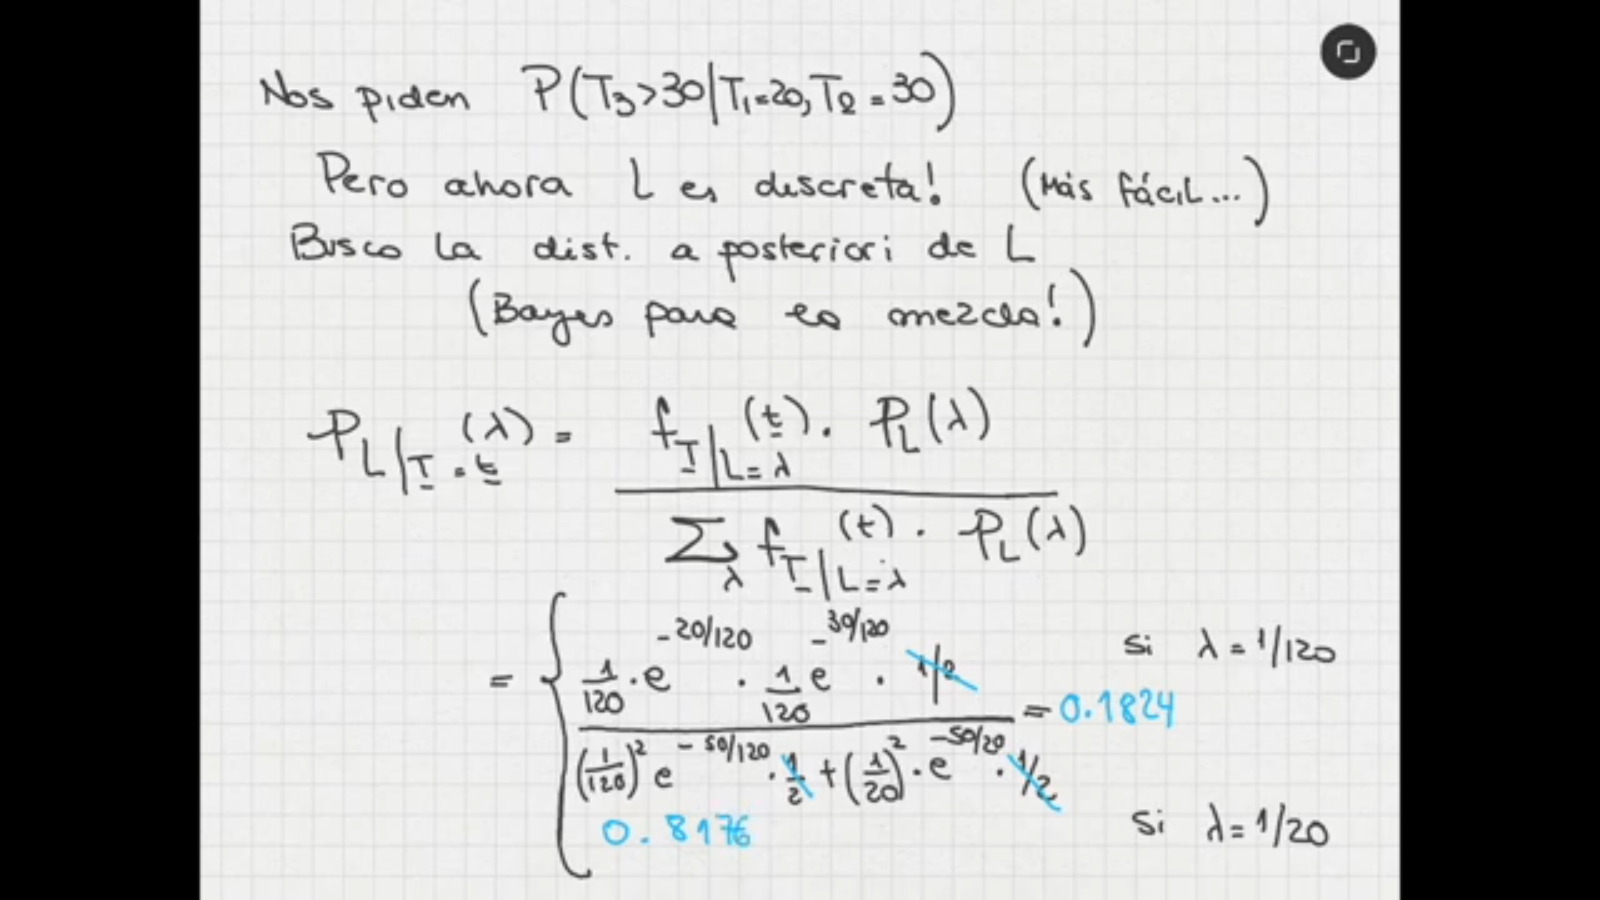 Nos piden P(T₃>30|T₁=20, T₂=30)
Pero ahora L es discreta! (Más fácil...)
Busco la dist. a posteriori de L
(Bayes para la mezcla!)
P_{L|T=t}(λ) = f_{T|L=λ}(t) · P_L(λ)
Σ_λ f_{T|L=λ}(t) · P_L(λ)
= { 1/120 · e^{-20/120} · 1/120 e^{-30/120} · 1/2 si λ = 1/120
= 0.1824
(1/120)² e^{-50/120} · 1/2 + (1/20)² · e^{-50/20} · 1/2
0.8176 si λ = 1/20